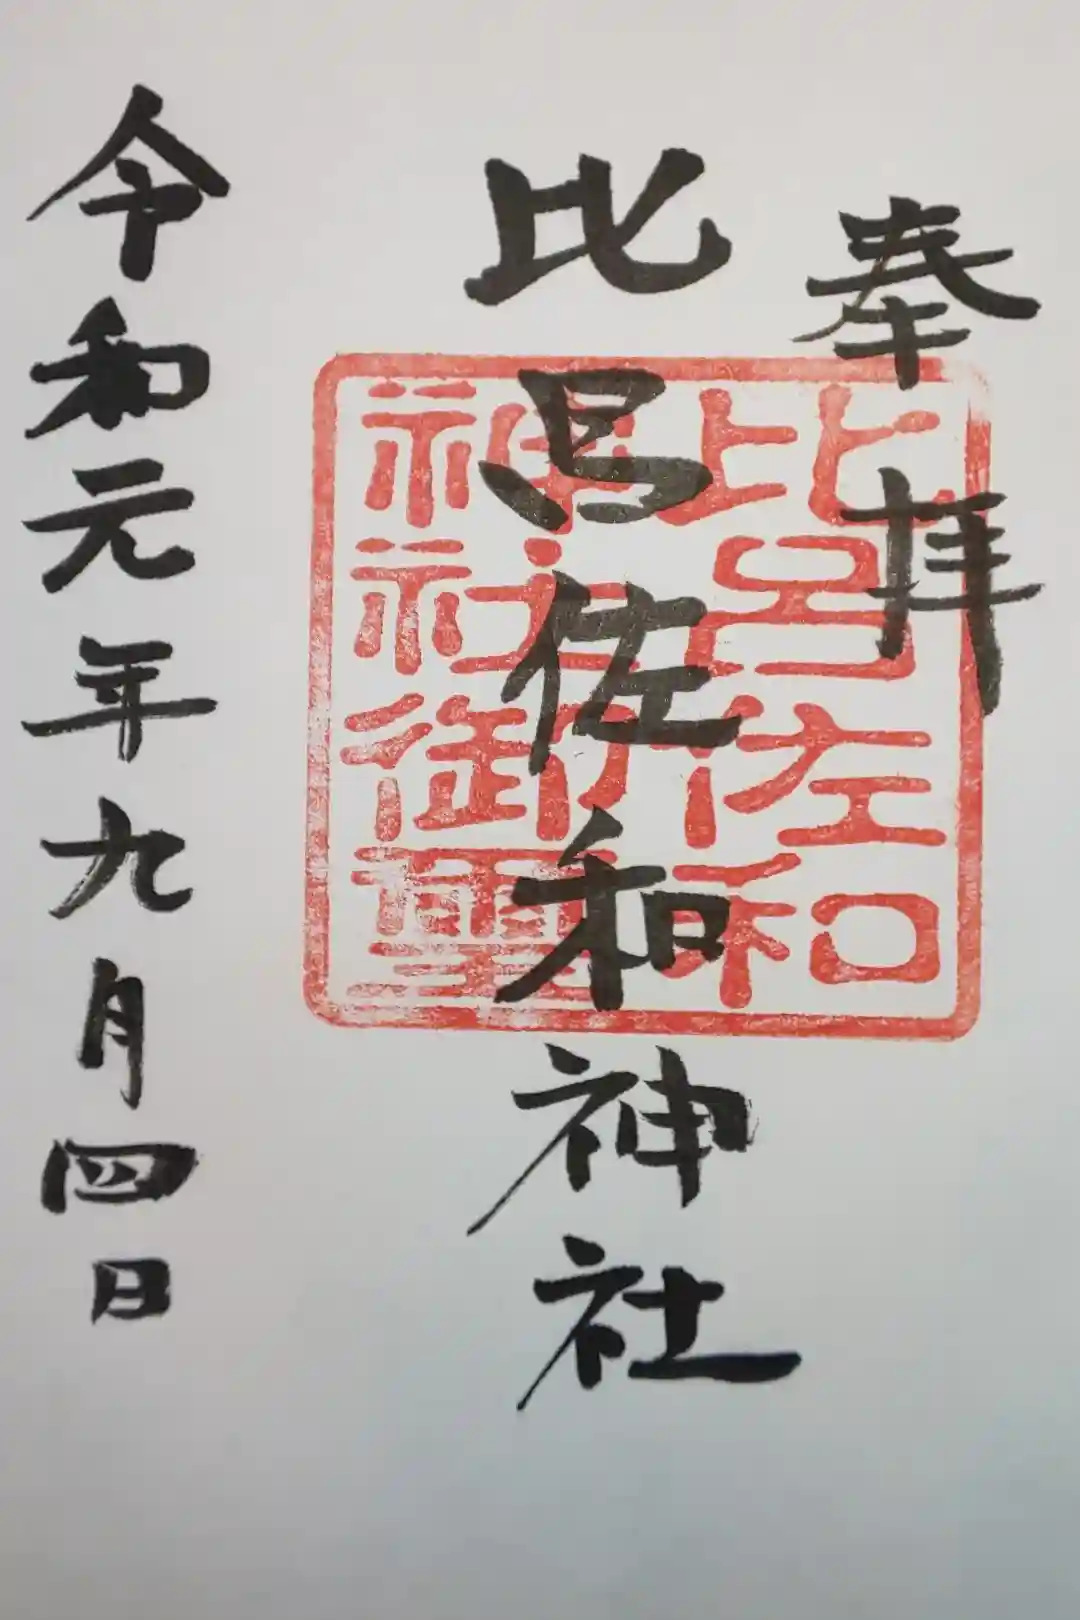 奉拝
比呂佐和神社
令和元年九月四日
比呂佐和
神社御璽